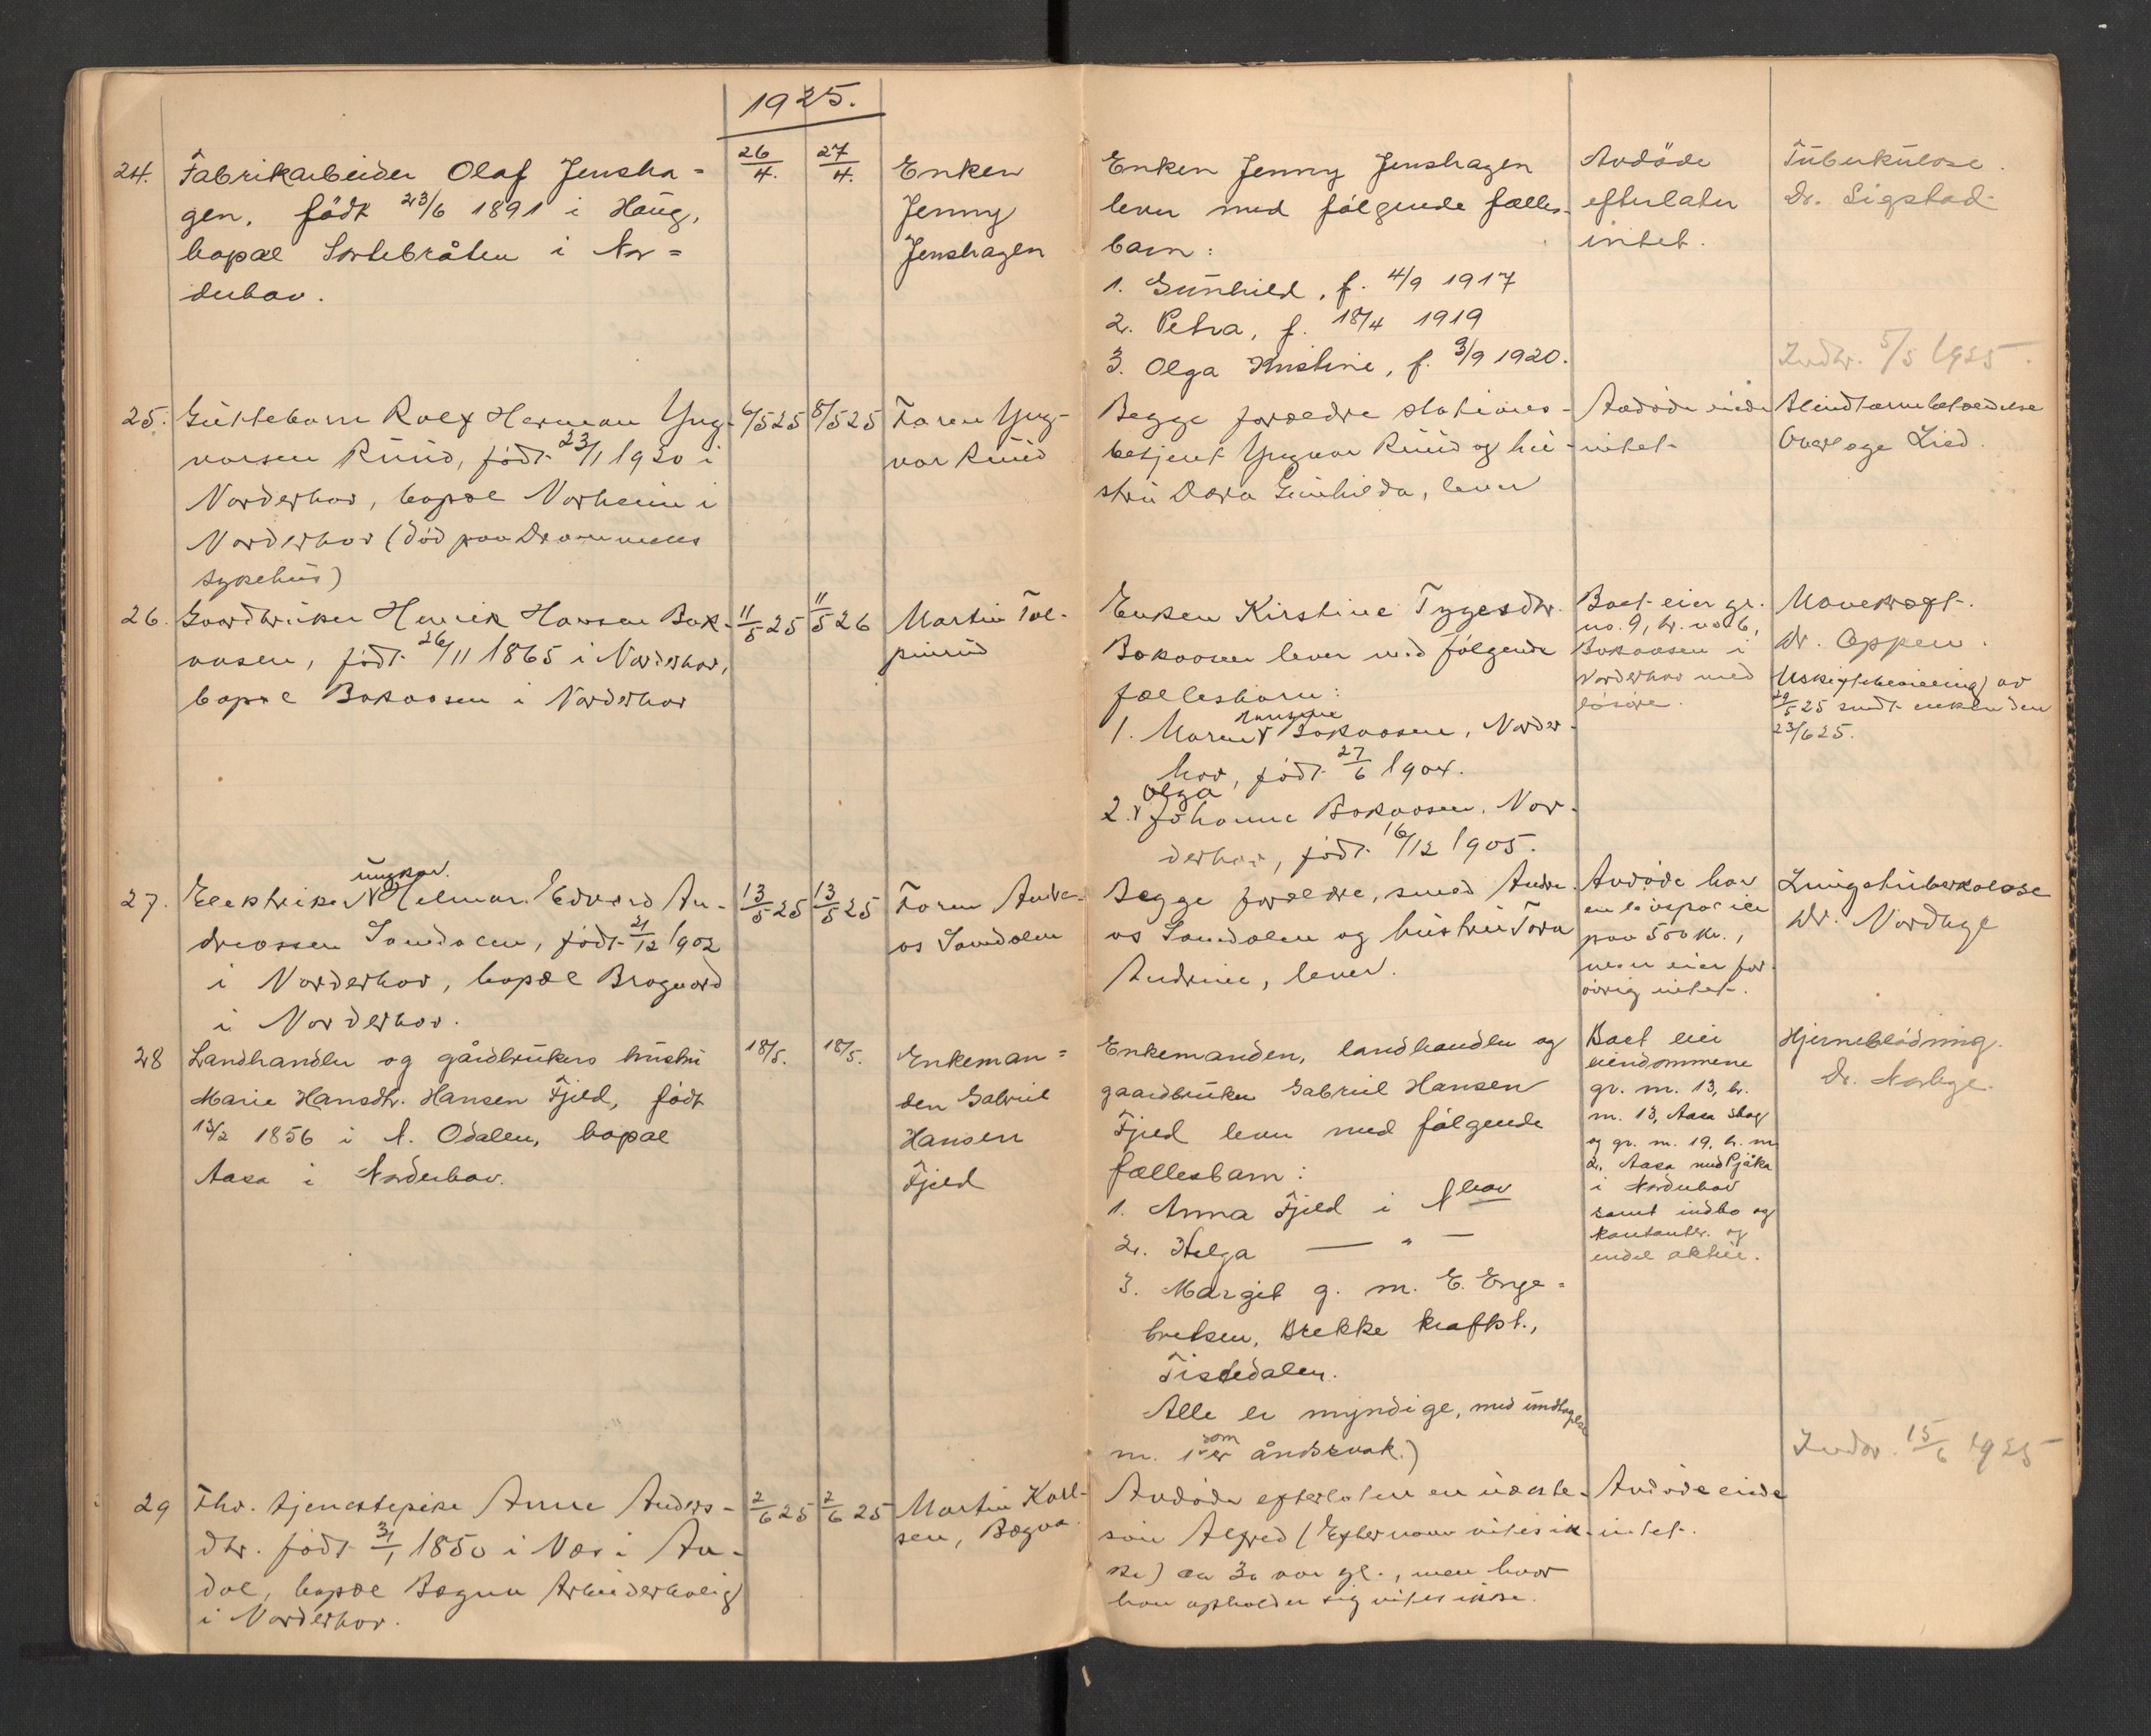 1925.
24. Fabrikarbeider Olaf Jensha=
gen, födt 23/6 1891 i Haug,
bopæl Sortebråten i Nor=
derhov.
26/4. 27/4.
Enken
Jenny
Jenshagen
Enken Jenny Jenshagen
lever med følgende fælles-
barn:
1. Gunhild, f. 4/9 1917
2. Petra, f. 18/4 1919
3. Olga Kristine, f. 3/9 1920.
Avdöde
efterlater
intet.
Tuberkulose.
Dr. Sigstad
Indbr. 5/5 1925.
25. Guttebarn Rolf Herman Yng-
varsen Ruud, født 23/1 1920 i
Norderhov, bopæl Norheim i
Norderhov (død paa Drammens
sykehus)
6/5 25 8/5 25
Faren Yng-
var Ruud
Begge forældre stations-
betjent Yngvar Ruud og hu-
stru Dora Gunhilda, lever
Avdøde eide
intet
Blindtarmbetændelse
Overlæge Lied.
26. Gaardbruker Henrik Hansen Bok-
aasen, født 26/11 1865 i Norderhov,
bopæl Bokaasen i Norderhov
11/5 25 11/5 26
Martin Tol-
pinrud
Enken Kirstine Tygesdtr.
Bokaasen lever med følgende
fællesbarn:
1. Maren Bokaasen, Norder-
hov, født 27/6 1904.
Olga
2. Johanne Bokaasen, Nor-
derhov, født 16/12 1905.
Boet eier gr.
no. 9, br. no 6,
Bokaasen i
Norderhov med
løsøre.
Mavekræft.
Dr. Oppen.
Uskiftebevilling av
25 sendt enken den
23/6 25.
27. Elektriker ungkar. Hilmar Edvard An-
dreassen Samdalen, født 21/12 1902
i Norderhov, bopæl Bragnord
i Norderhov.
13/5 25 13/5 25
Faren Andre-
as Samdalen
Begge forældre, smed Andre-
as Samdalen og hustru Tora
Andrine, lever.
Avdøde har
en livspolice
paa 500 kr.,
men eier for
øvrig intet.
Lungetuberkulose
Dr. Nordhge
28 Landhandler og gårdbrukers hustru
Marie Hansdtr. Hansen Fjeld, født
13/2 1856 i N. Odalen, bopæl
Aasa i Norderhov.
18/5. 18/5.
Enkeman=
den Gabriel
Hansen
Fjeld
Enkemanden, landhandler og
gaardbruker Gabriel Hansen
Fjeld lever med følgende
fællesbarn:
1. Anna Fjeld i Nhov
2. Helga — " —
3. Margit g. m. E. Enge=
bretsen, Brekke kraftst.,
Tistedalen.
Alle er myndige, med undtagelse
nr. 1 som er åndssvak.)
Boet eier
eiendommene
gr. nr. 13, br.
nr. 13, Aasa skog
og gr. nr. 19, br. nr
2, Aasa med Pjåka
i Norderhov
samt indbo og
kontanter og
endel aktier.
Hjerneblödning.
Dr. Norhge.
Indbr. 15/6 1925
29 Fhv. tjenestepike Anne Anders-
dtr. født 31/1 1850 i Nes i Aa-
dal, bopæl Bægna Arbeiderbolig
i Norderhov.
2/6 25 2/6 25
Martin Karl-
sen, Bægna
Avdøde efterlater en uægte
søn Alfred (Efternavn vites ik-
ke) ca 30 aar gl., men hvor
han opholder sig vites ikke.
Avdøde eide
intet.